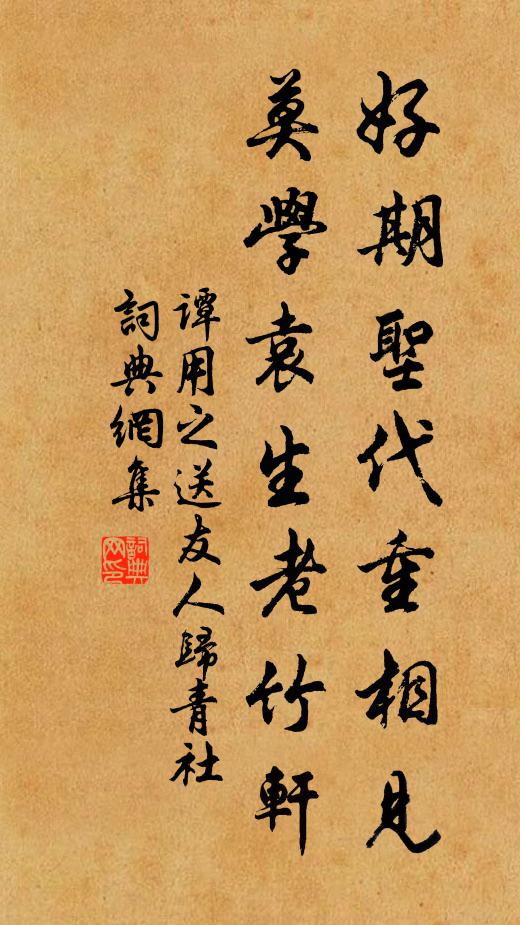 好期聖代重相見
莫學袁生老竹軒
譚用之送友人歸青社
詞典網集
詞典網印